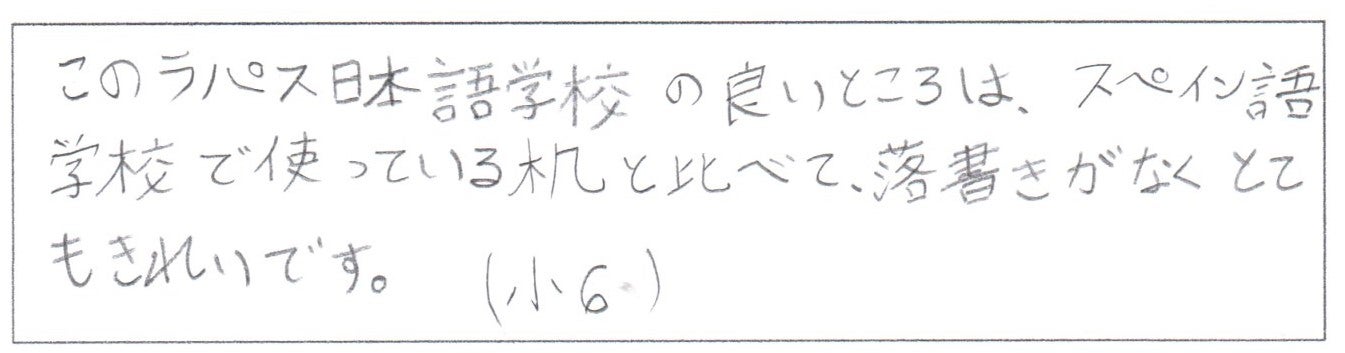 このラパス日本語学校の良いところは、スペイン語
学校で使っている机と比べて、落書きがなくとて
もきれいです。 (小6)